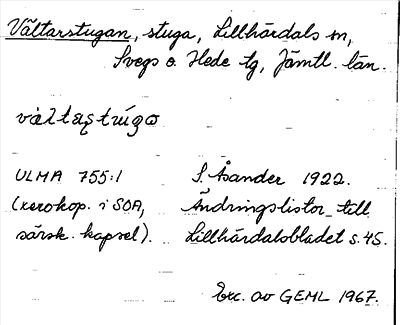 Vältarstugan, stuga, Lillhärdals sn,
Svegs o. Hede tg, Jämtl. län.
vàltaʂtúgo
ULMA 755:1 S. Åsander 1922.
(xerokop. i SOA, Ändringslistor till
särsk. kapsel). Lillhärdalsbladet s. 45.
Exc. av GEML 1967.